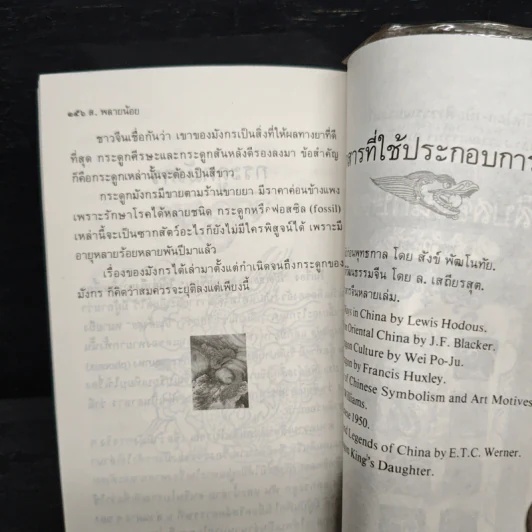 ๑๕๖ ส. พลายน้อย
ชาวจีนเชื่อกันว่า เขาของมังกรเป็นสิ่งที่ให้ผลทางยาที่ดี
ที่สุด กระดูกศีรษะและกระดูกสันหลังดีรองลงมา ข้อสำคัญ
ก็คือกระดูกเหล่านั้นจะต้องเป็นสีขาว
กระดูกมังกรมีขายตามร้านขายยา มีราคาค่อนข้างแพง
เพราะรักษาโรคได้หลายชนิด กระดูกหรือฟอสซิล (fossil)
เหล่านี้จะเป็นซากสัตว์อะไรก็ยังไม่มีใครพิสูจน์ได้ เพราะมี
อายุหลายร้อยหลายพันปีมาแล้ว
เรื่องของมังกรได้เล่ามาตั้งแต่กำเนิดจนถึงกระดูกของ
มังกร ก็คิดว่าสมควรจะยุติลงแต่เพียงนี้
สารที่ใช้ประกอบการ
พุทธกาล โดย สังข์ พัฒโนทัย.
ธรรมจีน โดย ล. เสถียรสุต.
จีนหลายเล่ม.
in China by Lewis Hodous.
Oriental China by J.F. Blacker.
Culture by Wei Po-Ju.
by Francis Huxley.
of Chinese Symbolism and Art Motives
1950.
Legends of China by E.T.C. Werner.
King's Daughter.